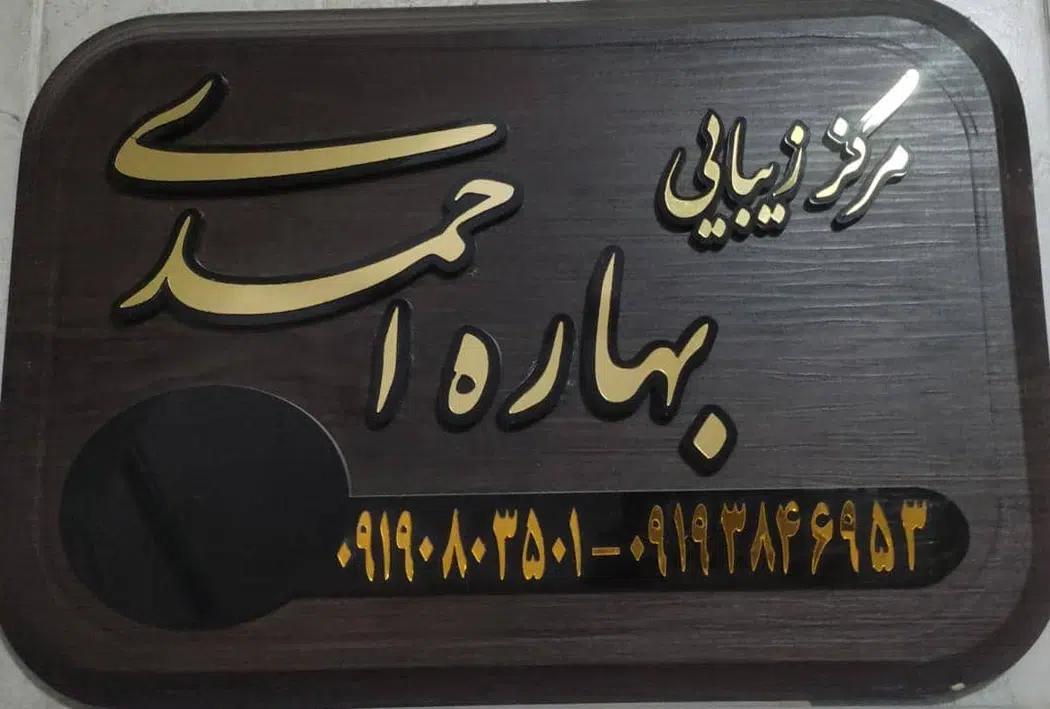 مرکز زیبایی
بهاره احمدی
۰۹۱۹۰۸۰۳۵۰۱-۰۹۱۹۳۸۴۶۹۵۳